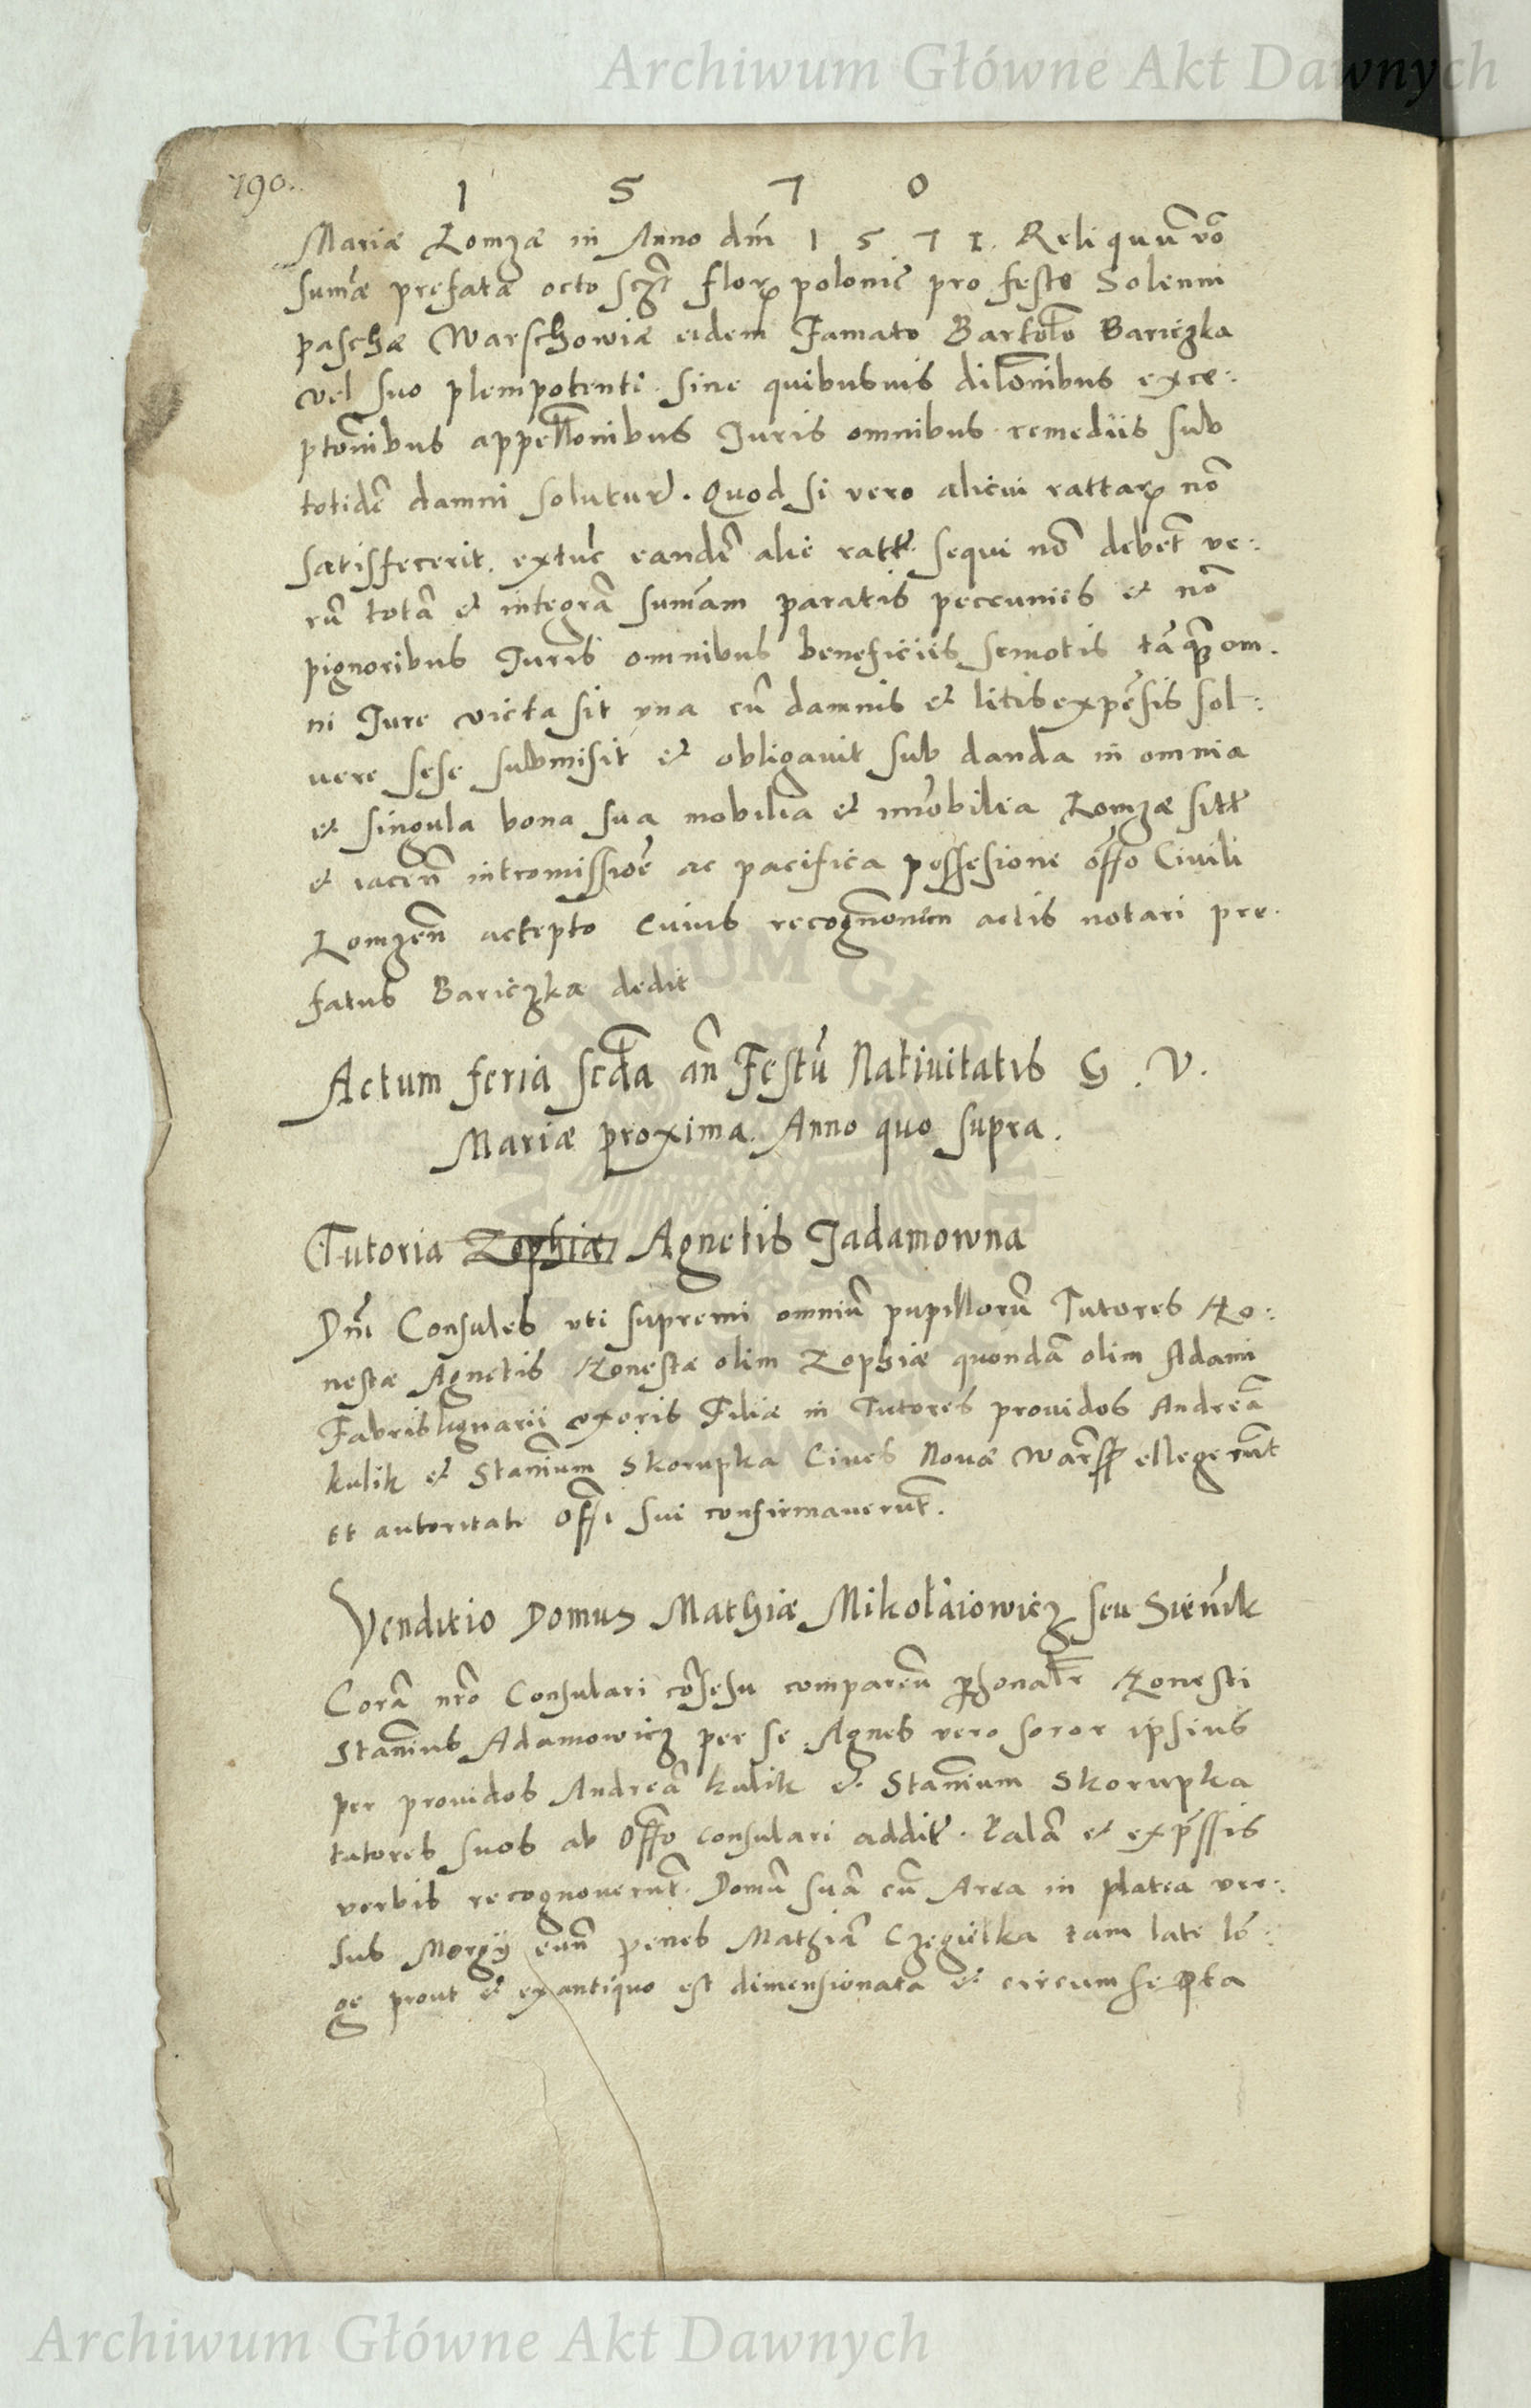 Archiwum Główne Akt Dawnych
190.
1 5 7 0
Mariæ Łomzæ in Anno dm̄ 1 5 7 1. Reliquū vō
sum̄æ prefatæ octo scz̄t florꝝ polonic̄ pro festo Solenni
paschæ Warschowiæ eidem Famato Bartol̄o Bariczka
vel suo plenipotenti sine quibusvis dilōnibus exce:
ptōnibus appell̄onibus Iuris omnibus remediis sub
totidē damni solutur̄. Quod si vero alicui rattarꝝ nō
satisfecerit. extūc eandē alie ratt̄ sequi nō debēt ve:
rū totā et integrā sum̄am paratis peccuniis et nō
pignoribus Iuris omnibus beneficiis semotis tā qꝫ om.
ni Iure victa sit vna cū damnis et litisexpēsis sol:
uere sese submisit et obligauit sub danda in omnia
et singula bona sua mobilia et im̄obilia Łomzæ sitt̄
et iacen̄ intromissiōe ac pacifica possesione offo Ciuili
Łomzen̄ accepto Cuius recognonem actis notari pre.
fatus Bariczka dedit
Actum feria scda an̄ Festū Natiuitatis G. V.
Mariæ proxima. Anno quo supra.
Tutoria Zophiæ Agnetis Jadamowna
Dn̄i Consules vti supremi omniū pupillorū Tutores Ho:
nestæ Agnetis Honestæ olim Zophiæ quondā olim Adami
Fabrislignarii vxoris Filiæ in Tutores prouidos Andreā
kulik et Stan̄ium Skorupka Ciues Nouæ Warss̄ ellegerūt
Et autoritate offi sui confirmauerūt.
Venditio Domus Mathiæ Mikołaiowicz seu Sien̄ik
Corā nr̄o Consulari cōsesu comparen̄ ꝑsonalr̄ Honesti
Stan̄ius Adamowicz per se Agnes vero soror ipsius
per prouidos Andreā kulik et Stan̄ium Skorupka
tutores suos ab offo consulari addit̄. Palā et exp̄ssis
verbis recognouerūt. Domū suā cū Area in platea ver:
sus Morgÿ eun̄ penes Mathiā Czegielka tam late lō:
ge prout et ex antiquo est dimensionata et circumsepta
Archiwum Główne Akt Dawnych